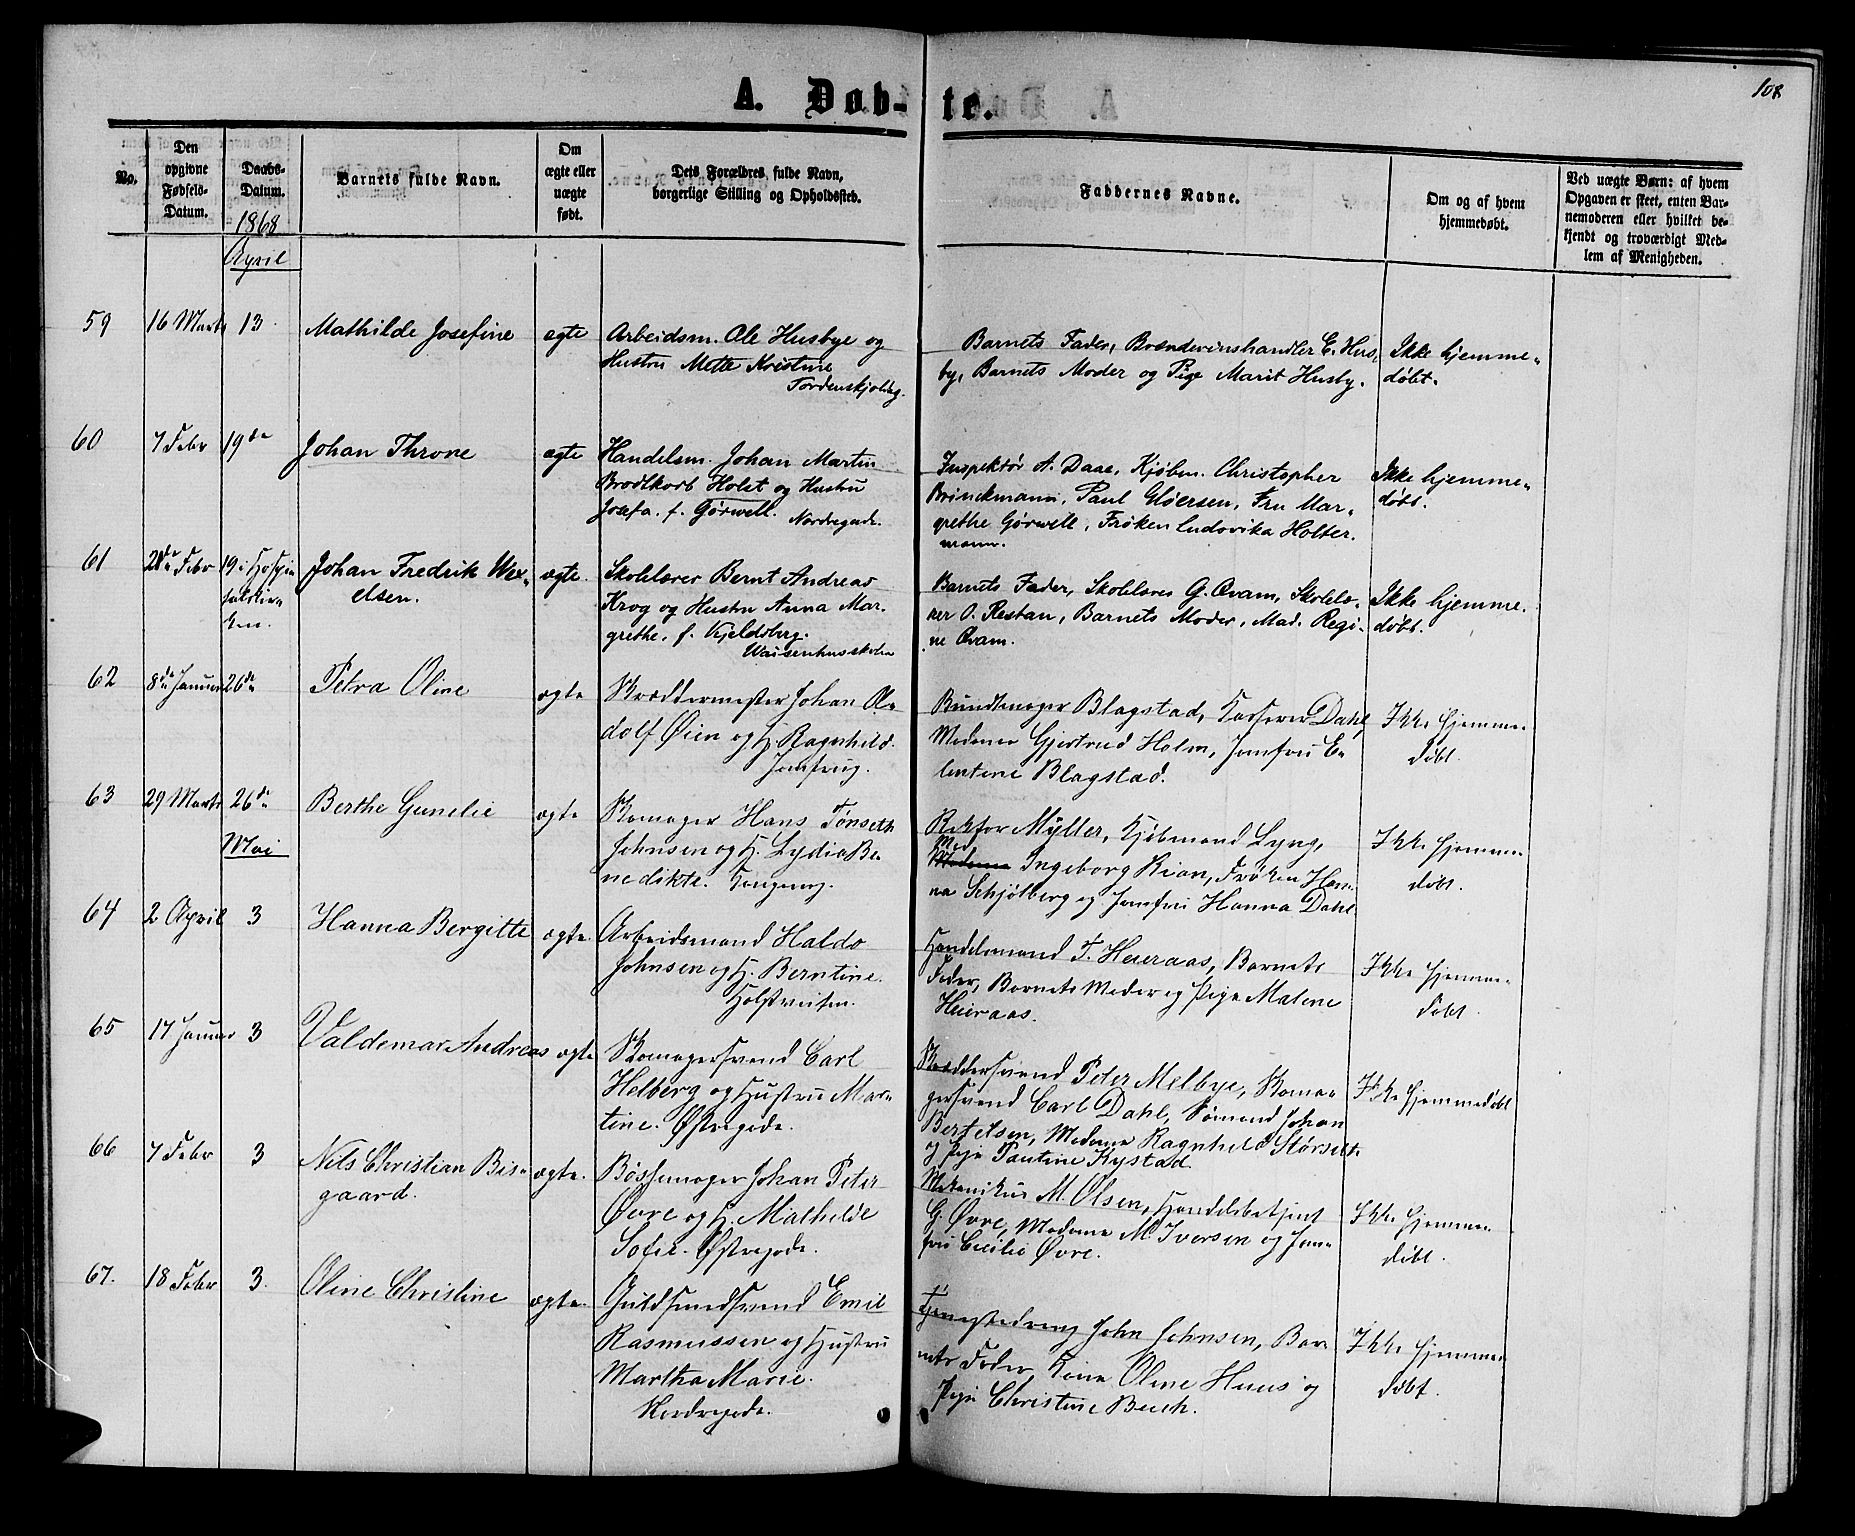 108
A. Døb- te.
No.
Den
opgivne
Fødsels-
Datum.
Daabs-
Datum.
1868
April
Barnets fulde Navn.
Om
ægte eller
uægte
født.
Dets Forældres fulde Navn,
borgerlige Stilling og Opholdssted.
Faddernes Navne.
Om og af hvem
hjemmedøbt.
Ved uægte Børn: af hvem
Opgaven er skeet, enten Bar-
nemoderen eller hvilket be-
kjendt og troværdigt Med-
lem af Menigheden.
59
16 Marts
13.
Mathilde Josefine
ægte
Arbeidsm. Ole Husbye og
Hustru Mette Kristine
Tordenskjoldsg.
Barnets Fader, Brændevinshandler C. Hus-
by, Barnets Moder og Pige Marit Husby.
Ikke hjemme-
døbt.
60
7 Febr
19de
Johan Throne
ægte
Handelsm. Johan Martin
Brodtkorb Holst og Hustru
Josefa. f. Görwell. Nordregade.
Inspektør A. Daae, Kjøbm. Christopher
Brinckmann, Paul Gløersen, Fru Mar-
grethe Görwell, Frøken Ludovika Holter-
mann.
Ikke hjemme-
døbt.
61
2de Febr
19 i Hospi-
talskir-
ken.
Johan Fredrik Wex-
elsen.
ægte.
Skolelærer Bernt Andreas
Krog og Hustru Anna Mar-
grethe, f. Kjeldsberg.
Waisenhusskolen
Barnets Fader, Skolelærer G. Qvam, Skolelæ-
rer O. Restan, Barnets Moder, Mad. Regi-
ne Qvam.
Ikke hjemme-
døbt.
62
8de Januar
26de
Petra Oline
ægte
Skræddermester Johan A-
dolf Øien og H. Ragnhild.
Jomfrug.
Bundtmager Blagstad, Kasserer Dahl,
Madame Gjertrud Holm, Jomfru E-
lentine Blagstad.
Ikke hjemme-
døbt.
63
29 Marts
26de
Mai
Berthe Gunelie
ægte
Skomager Hans Tønseth
Johnsen og H. Lydia Be-
nedikte. Kongensg.
Rektor Müller, Kjøbmand Lyng,
Mad
Madame Ingeborg Rian, Frøken Han-
na Schjølberg og Jomfru Hanna Dahl
Ikke hjemme-
døbt.
64
2 April
3
Hanna Bergitte
ægte.
Arbeidsmand Haldo
Johnsen og H. Berntine.
Holstveiten.
Handelsmand T. Heieraas, Barnets
Fader, Barnets Moder og Pige Malene
Heieraas.
Ikke hjemme-
døbt.
65
17 Januar
3
Valdemar Andreas
ægte
Skomagersvend Carl
Helberg og Hustru Mar-
tine. Østregade.
Skræddersvend Peter Melbye, Skoma-
gersvend Carl Dahl, Sømand Johan
Bertelsen, Madame Ragnhild Størseth
og Pige Pauline Rystad.
Ikke hjemmedøbt
66
7 Febr
3
Nils Christian Bis-
gaard.
ægte.
Bøssemager Johan Peter
Øvre og H. Mathilde
Sofie. Østregade.
Mekanikus M. Olsen, Handelsbetjent
G. Øvre, Madame M. Iversen og Jom-
fru Cecilie Øvre.
Ikke hjemme-
døbt.
67.
18 Febr
3.
Oline Christine
ægte.
Guldsmedsvend Emil
Rasmussen og Hustru
Martha Marie.
Nordregade.
Tjenestedreng John Johnsen, Bar-
nets Fader, Kone Oline Huus og
Pige Christine Buch.
Ikke hjemme-
døbt.